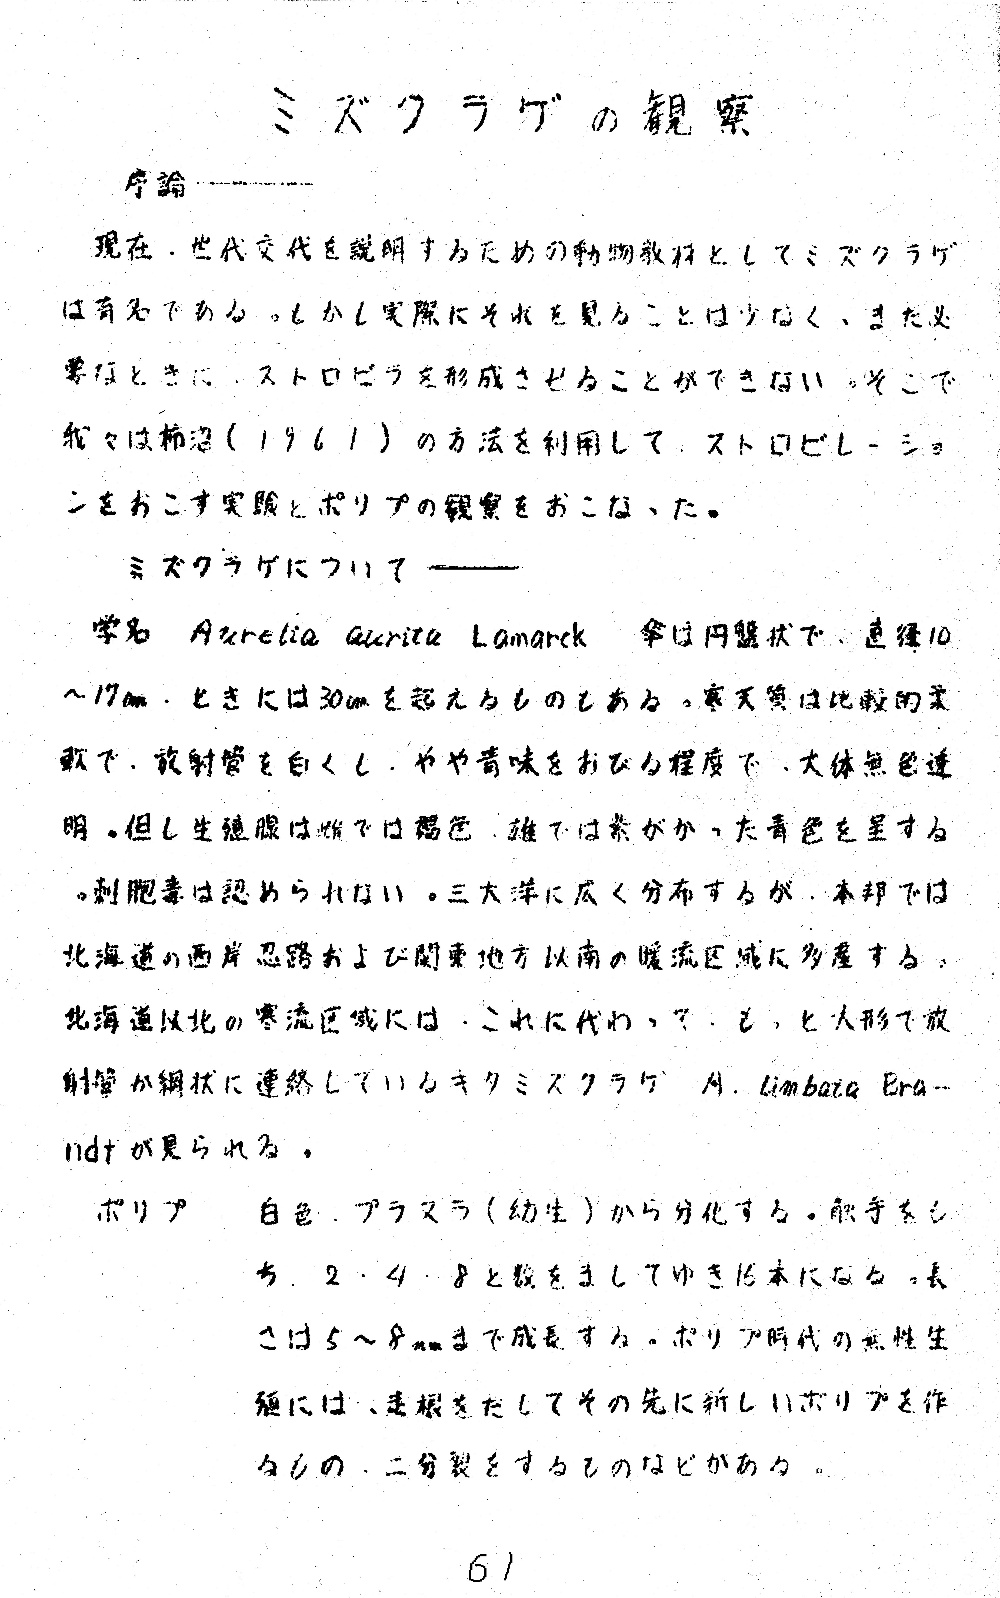 ミズクラゲの観察
序論————
現在、世代交代を説明するための動物教材としてミズクラゲ
は有名である。しかし実際にそれを見ることは少なく、また必
要なときに、ストロビラを形成させることができない。そこで
我々は柿沼(1961)の方法を利用して、ストロビレーショ
ンをおこす実験とポリプの観察をおこなった。
ミズクラゲについて———
学名 Aurelia aurita Lamarck 傘は円盤状で、直径10
～17cm、ときには30cmを超えるものもある。寒天質は比較的柔
軟で、放射管を白くし、やや青味をおびる程度で、大体無色透
明。但し生殖腺は雌では褐色、雄では紫がかった青色を呈する
。刺胞毒は認められない。三大洋に広く分布するが、本邦では
北海道の西岸忍路および関東地方以南の暖流区域に多産する。
北海道以北の寒流区域には、これに代わって、もっと大形で放
射管が網状に連絡しているキタミズクラゲ A. limbata Bra-
ndtが見られる。
ポリプ 白色、プラヌラ(幼生)から分化する。触手をも
ち、2・4・8と数をましてゆき16本になる。長
さは5～8mmまで成長する。ポリプ時代の無性生
殖には、走根をだしてその先に新しいポリプを作
るもの、二分裂をするものなどがある。
61